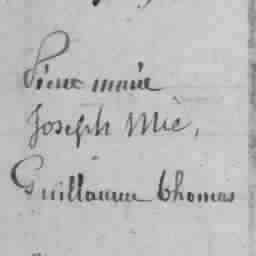 Pierre marie
Joseph Mic,
Guillaume thomas